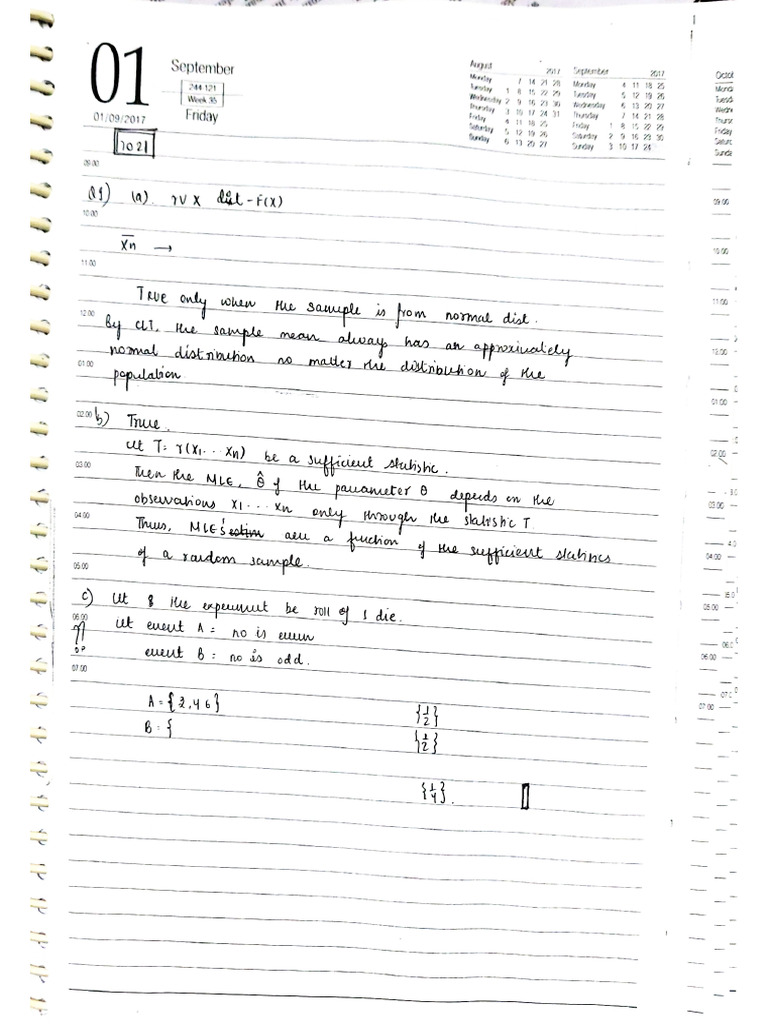 01
September
244-121
Week 35
01/09/2017
Friday
August 2017
Monday 7 14 21 28
Tuesday 1 8 15 22 29
Wednesday 2 9 16 23 30
Thursday 3 10 17 24 31
Friday 4 11 18 25
Saturday 5 12 19 26
Sunday 6 13 20 27
September 2017
Monday 4 11 18 25
Tuesday 5 12 19 26
Wednesday 6 13 20 27
Thursday 7 14 21 28
Friday 1 8 15 22 29
Saturday 2 9 16 23 30
Sunday 3 10 17 24
2021
09.00
Q1) (a). rv X dist - F(X)
10.00
X̄n →
11.00
True only when the sample is from normal dist.
12.00
By CLT, the sample mean always has an approximately
normal distribution no matter the distribution of the
01.00
population.
02.00 b) True.
Let T = r(x1 . . . xn) be a sufficient statistic.
03.00
Then the MLE, θ̂ of the parameter θ depends on the
observations x1 . . . xn only through the statistic T.
04.00
Thus, MLE's are a function of the sufficient statistics
of a random sample.
05.00
c) Let the experiment be roll of 1 die.
06.00
Let event A = no is even
event B = no is odd.
07.00
A = {2,4 6} {1/2}
B = { {1/2}
{1/4}.